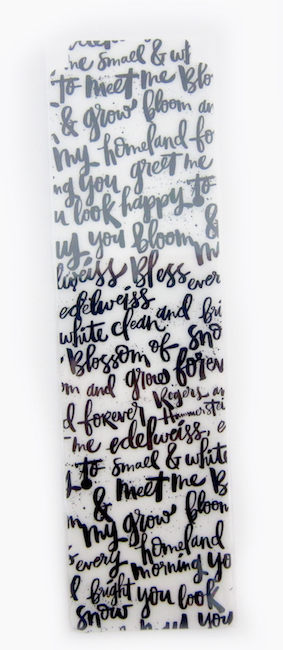 me small & wh
to meet me Blo
& grow bloom an
my homeland fo
ng you greet me
u look happy to
you bloom &
lweiss Bless m
ever
edelweiss and bri
white clean
Blossom of sno
om and grow forev
d forever Rogers an
Hammerstei
me edelweiss. e
to small & white
& meet me B
my grow bloom
every homeland
morning yo
d bright you look
snow you